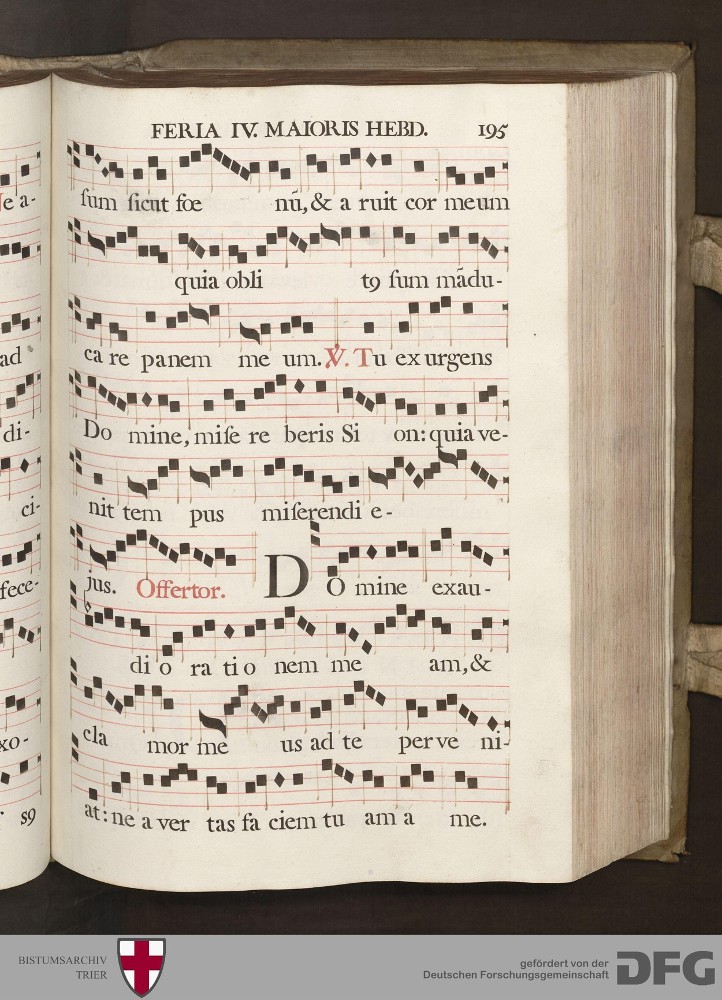 FERIA IV. MAIORIS HEBD. 195
ſum ſicut fœ nū, & a ruit cor meum
quia obli tꝰ ſum mãdu-
ca re panem me um. ℣. Tu ex urgens
Do mine, miſe re beris Si on: quia ve-
nit tem pus miſerendi e-
jus. Offertor. DO mine exau-
di o ra ti o nem me am, &
cla mor me us ad te per ve ni-
at: ne a ver tas fa ciem tu am a me.
e a-
ad
di-
ci-
fece-
xo-
sꝰ
BISTUMSARCHIV
TRIER
gefördert von der
Deutschen Forschungsgemeinschaft
DFG